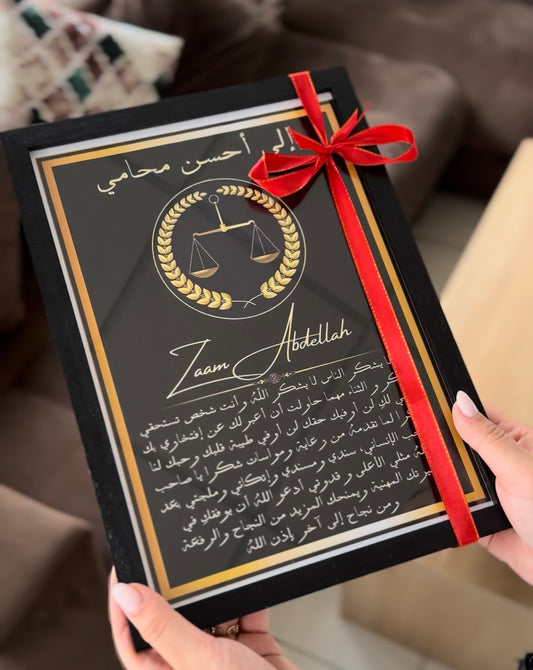 إلى أحسن محامي
Zaam Abdellah
يشكر الناس لا يشكر اللّه وأنت شخص تستحقي
و الثناء مهما حاولت أن أعبر لك عن إفتخاري بك
لكِ لن أوفيك حقك لن أوفي طيبة قلبك وحبك لنا
لما تقدمة من رعاية ومواسات شكرا يا صاحب
الإنساني، سندي ومسندي وإتكائي وملجئي بعد
مثلي الأعلى و قدوتي أدعو اللّه أن يوفقكِ في
المهنية ويمنحك المزيد من النجاح والرفعة
ومن نجاح إلى آخر بإذن اللّه